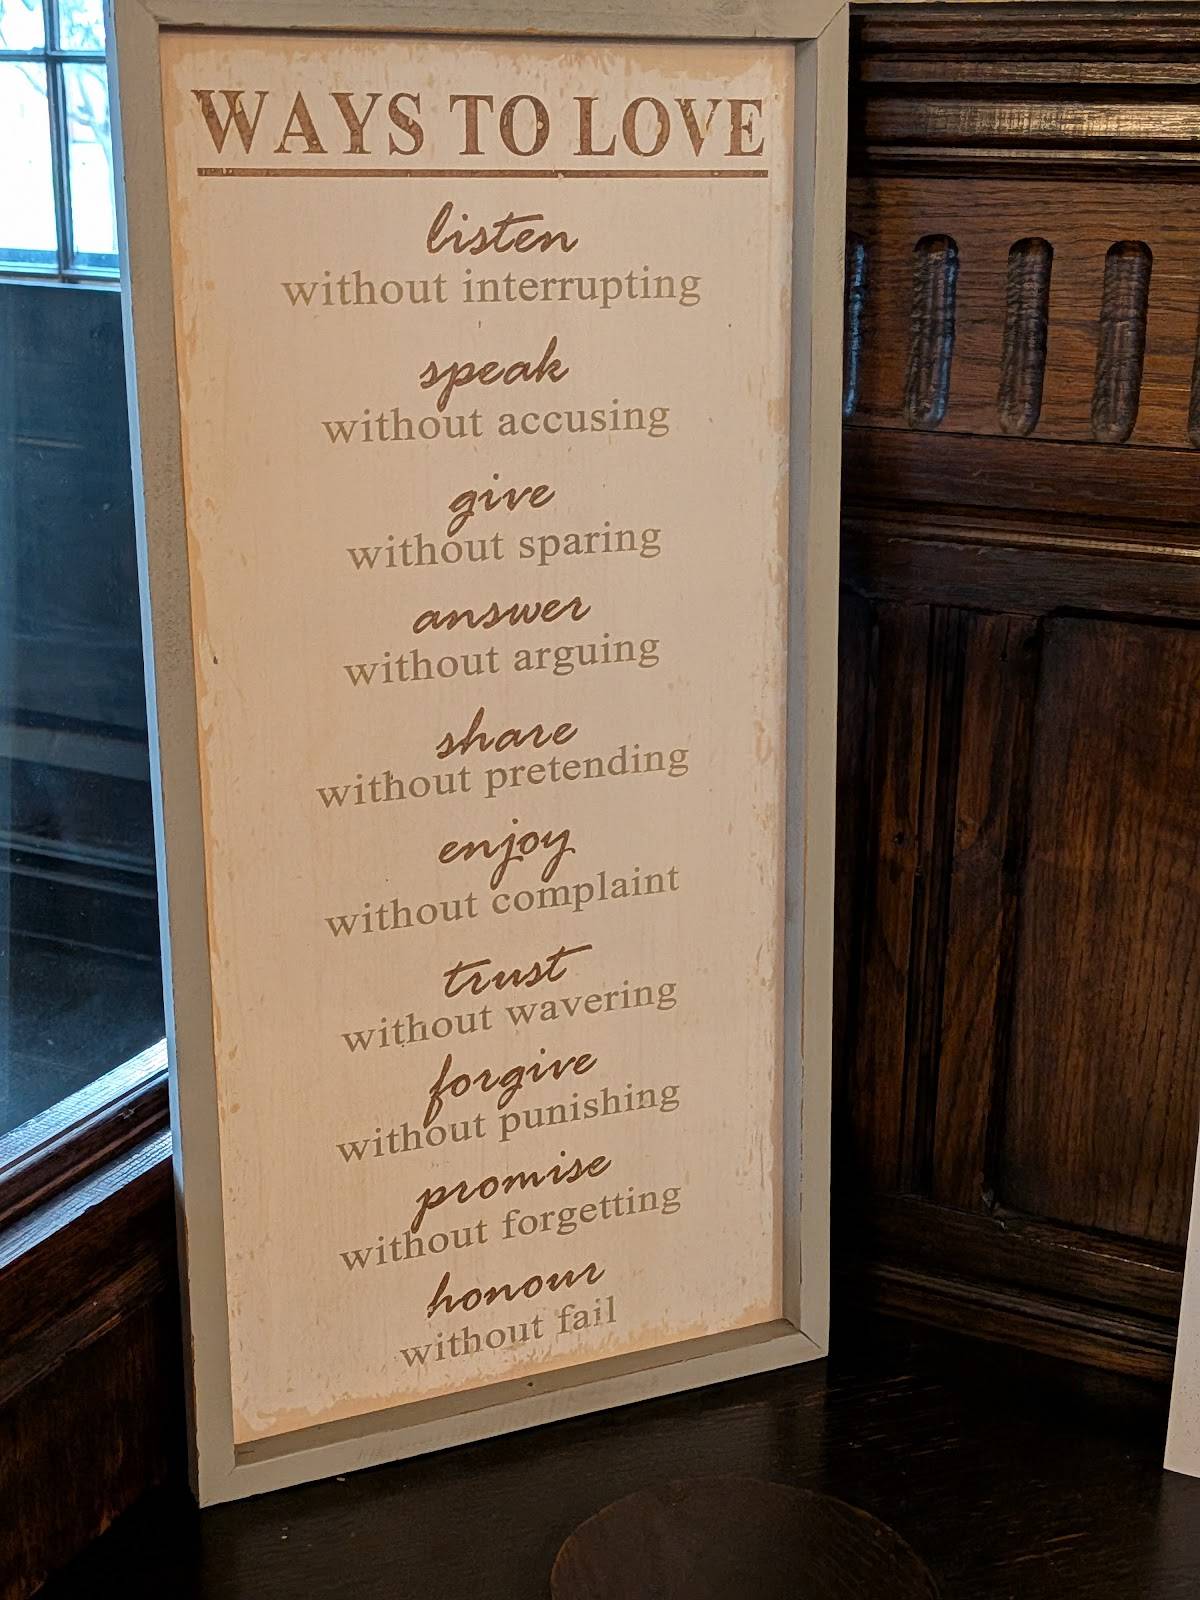 WAYS TO LOVE
listen
without interrupting
speak
without accusing
give
without sparing
answer
without arguing
share
without pretending
enjoy
without complaint
trust
without wavering
forgive
without punishing
promise
without forgetting
honour
without fail